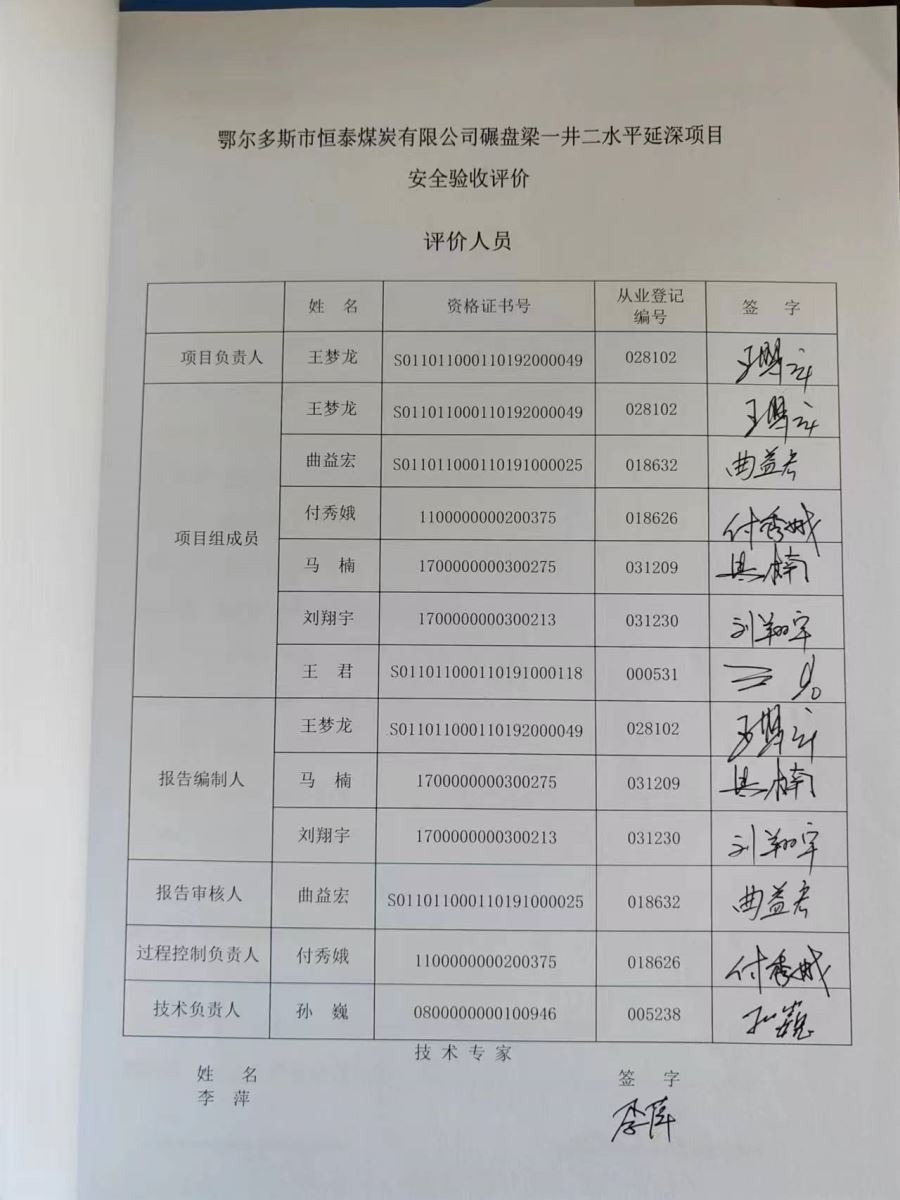 鄂尔多斯市恒泰煤炭有限公司碾盘梁一井二水平延深项目
安全验收评价
评价人员
姓 名 资格证书号 从业登记编号 签 字
项目负责人 王梦龙 S011011000110192000049 028102 王梦龙
项目组成员 王梦龙 S011011000110192000049 028102 王梦龙
曲益宏 S011011000110191000025 018632 曲益宏
付秀娥 1100000000200375 018626 付秀娥
马 楠 1700000000300275 031209 马楠
刘翔宇 1700000000300213 031230 刘翔宇
王 君 S011011000110191000118 000531 王君
报告编制人 王梦龙 S011011000110192000049 028102 王梦龙
马 楠 1700000000300275 031209 马楠
刘翔宇 1700000000300213 031230 刘翔宇
报告审核人 曲益宏 S011011000110191000025 018632 曲益宏
过程控制负责人 付秀娥 1100000000200375 018626 付秀娥
技术负责人 孙 巍 0800000000100946 005238 孙巍
技 术 专 家
姓 名 签 字
李 萍 李萍